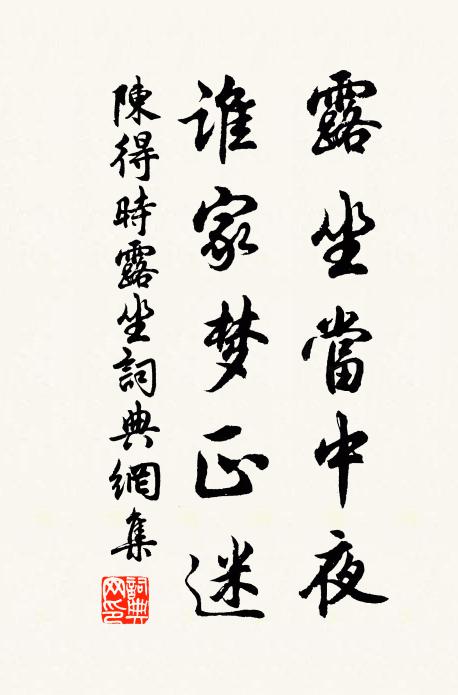 露坐當中夜
谁家梦正迷
陳得時露坐詞典網集
詞典
网印